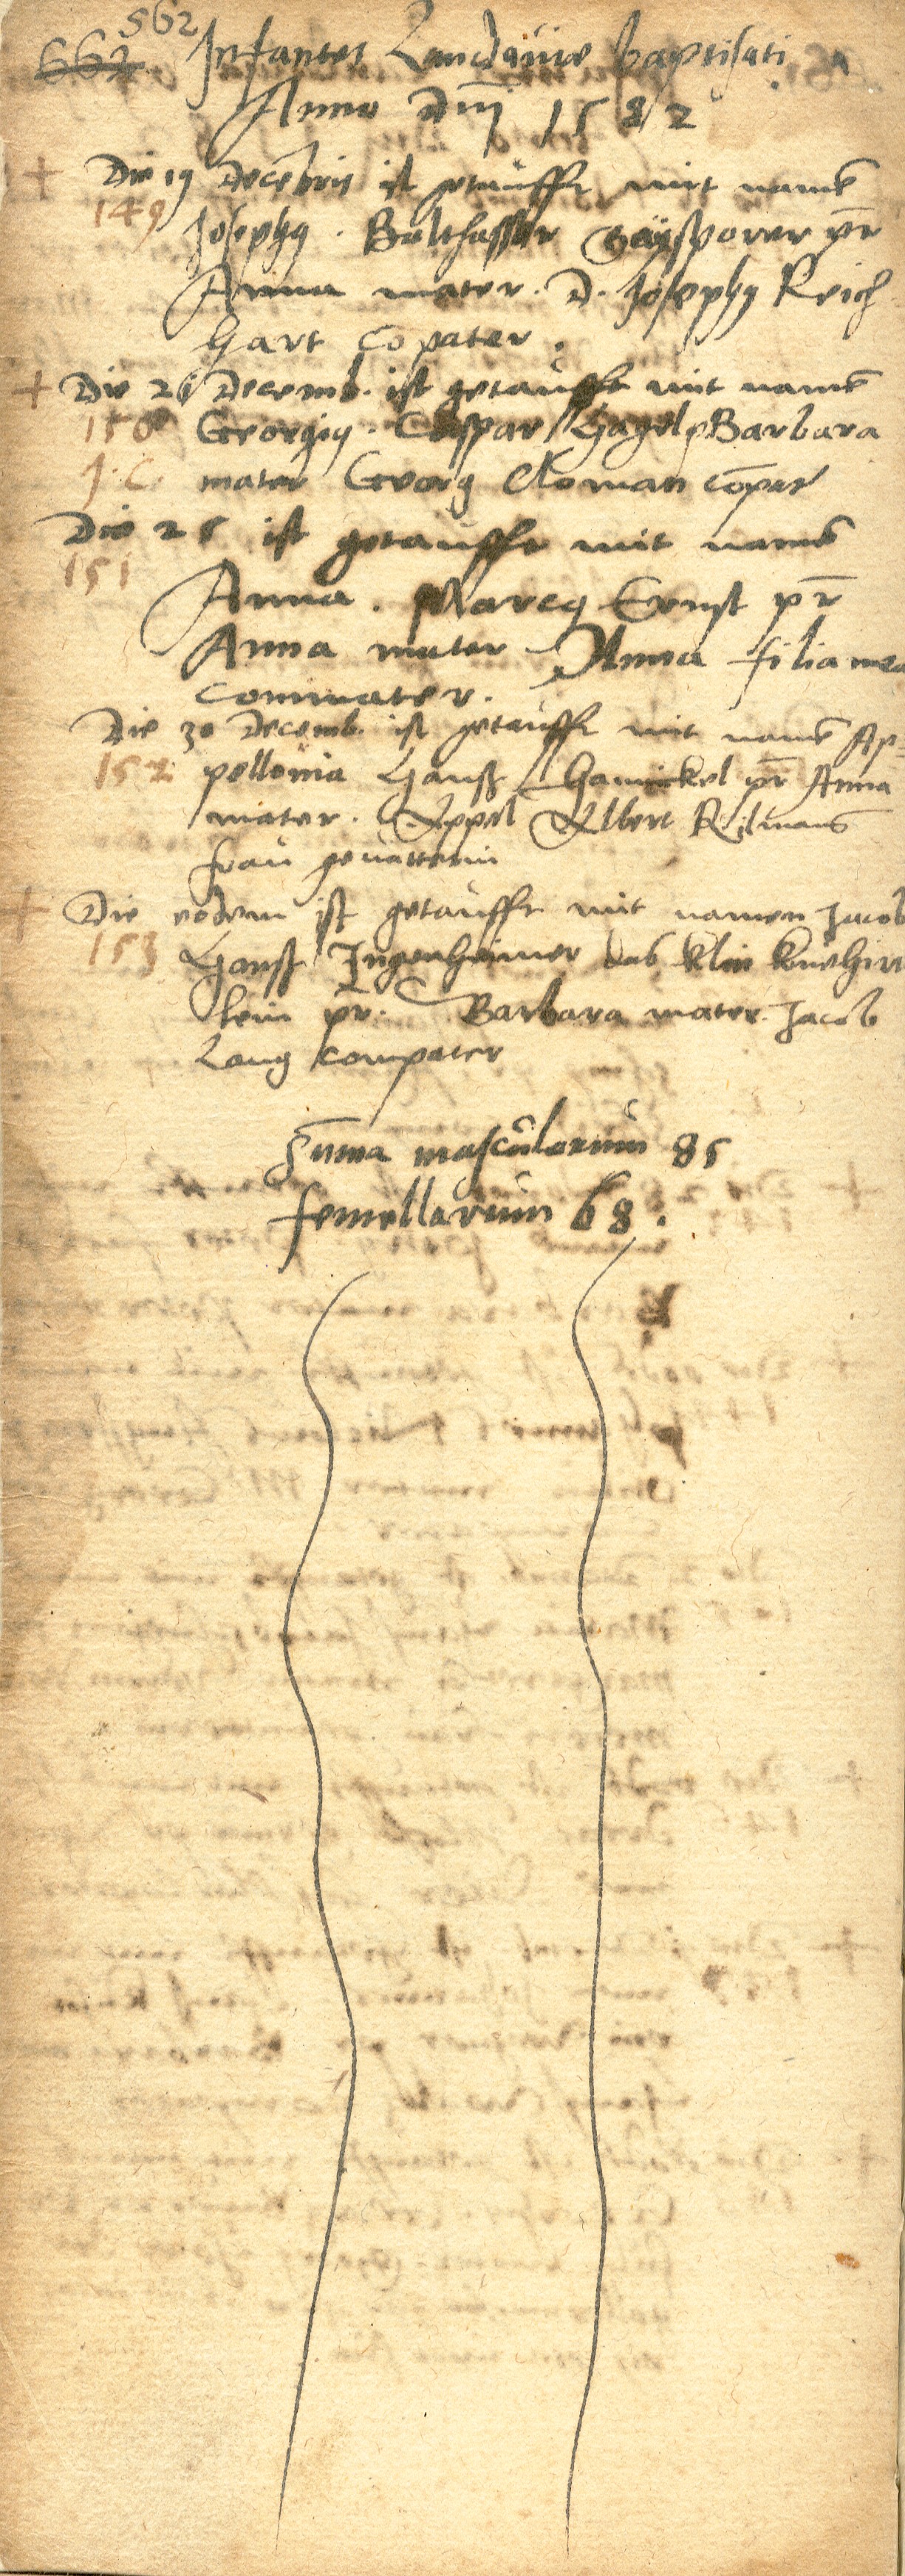 562
662 Infantes Landauiae baptisati
Anno Dnī 1582
+ Die 19 Decēbris ist getaufft mit namē
149 Josephq. Balthassar Geÿsporer pr̄
Anna mater. D. Josephq Reich
hart Copater.
+ Die 26 Decemb. ist getaufft mit namē
150 Georgiq. Caspar Hagel p Barbara
J. C. mater Georg Roman cōpat
Die 25 ist getaufft mit namē
151
Anna. Marcq Ernst pr̄
Anna mater Anna filia mea
commater.
Die 30 Decemb. ist getaufft mit namē Ap-
152 pellonia Hanß Hamickel pr̄ Anna
mater. Appel Albert Kilmans
frau geuatterin
+ Die eodem ist getaufft mit namen Jacob
153 Hanß Ingenheimer das klein kuehirt
lein pr̄. Barbara mater. Jacob
Lang compater
Sūma masculorum 85
femellarum 68.